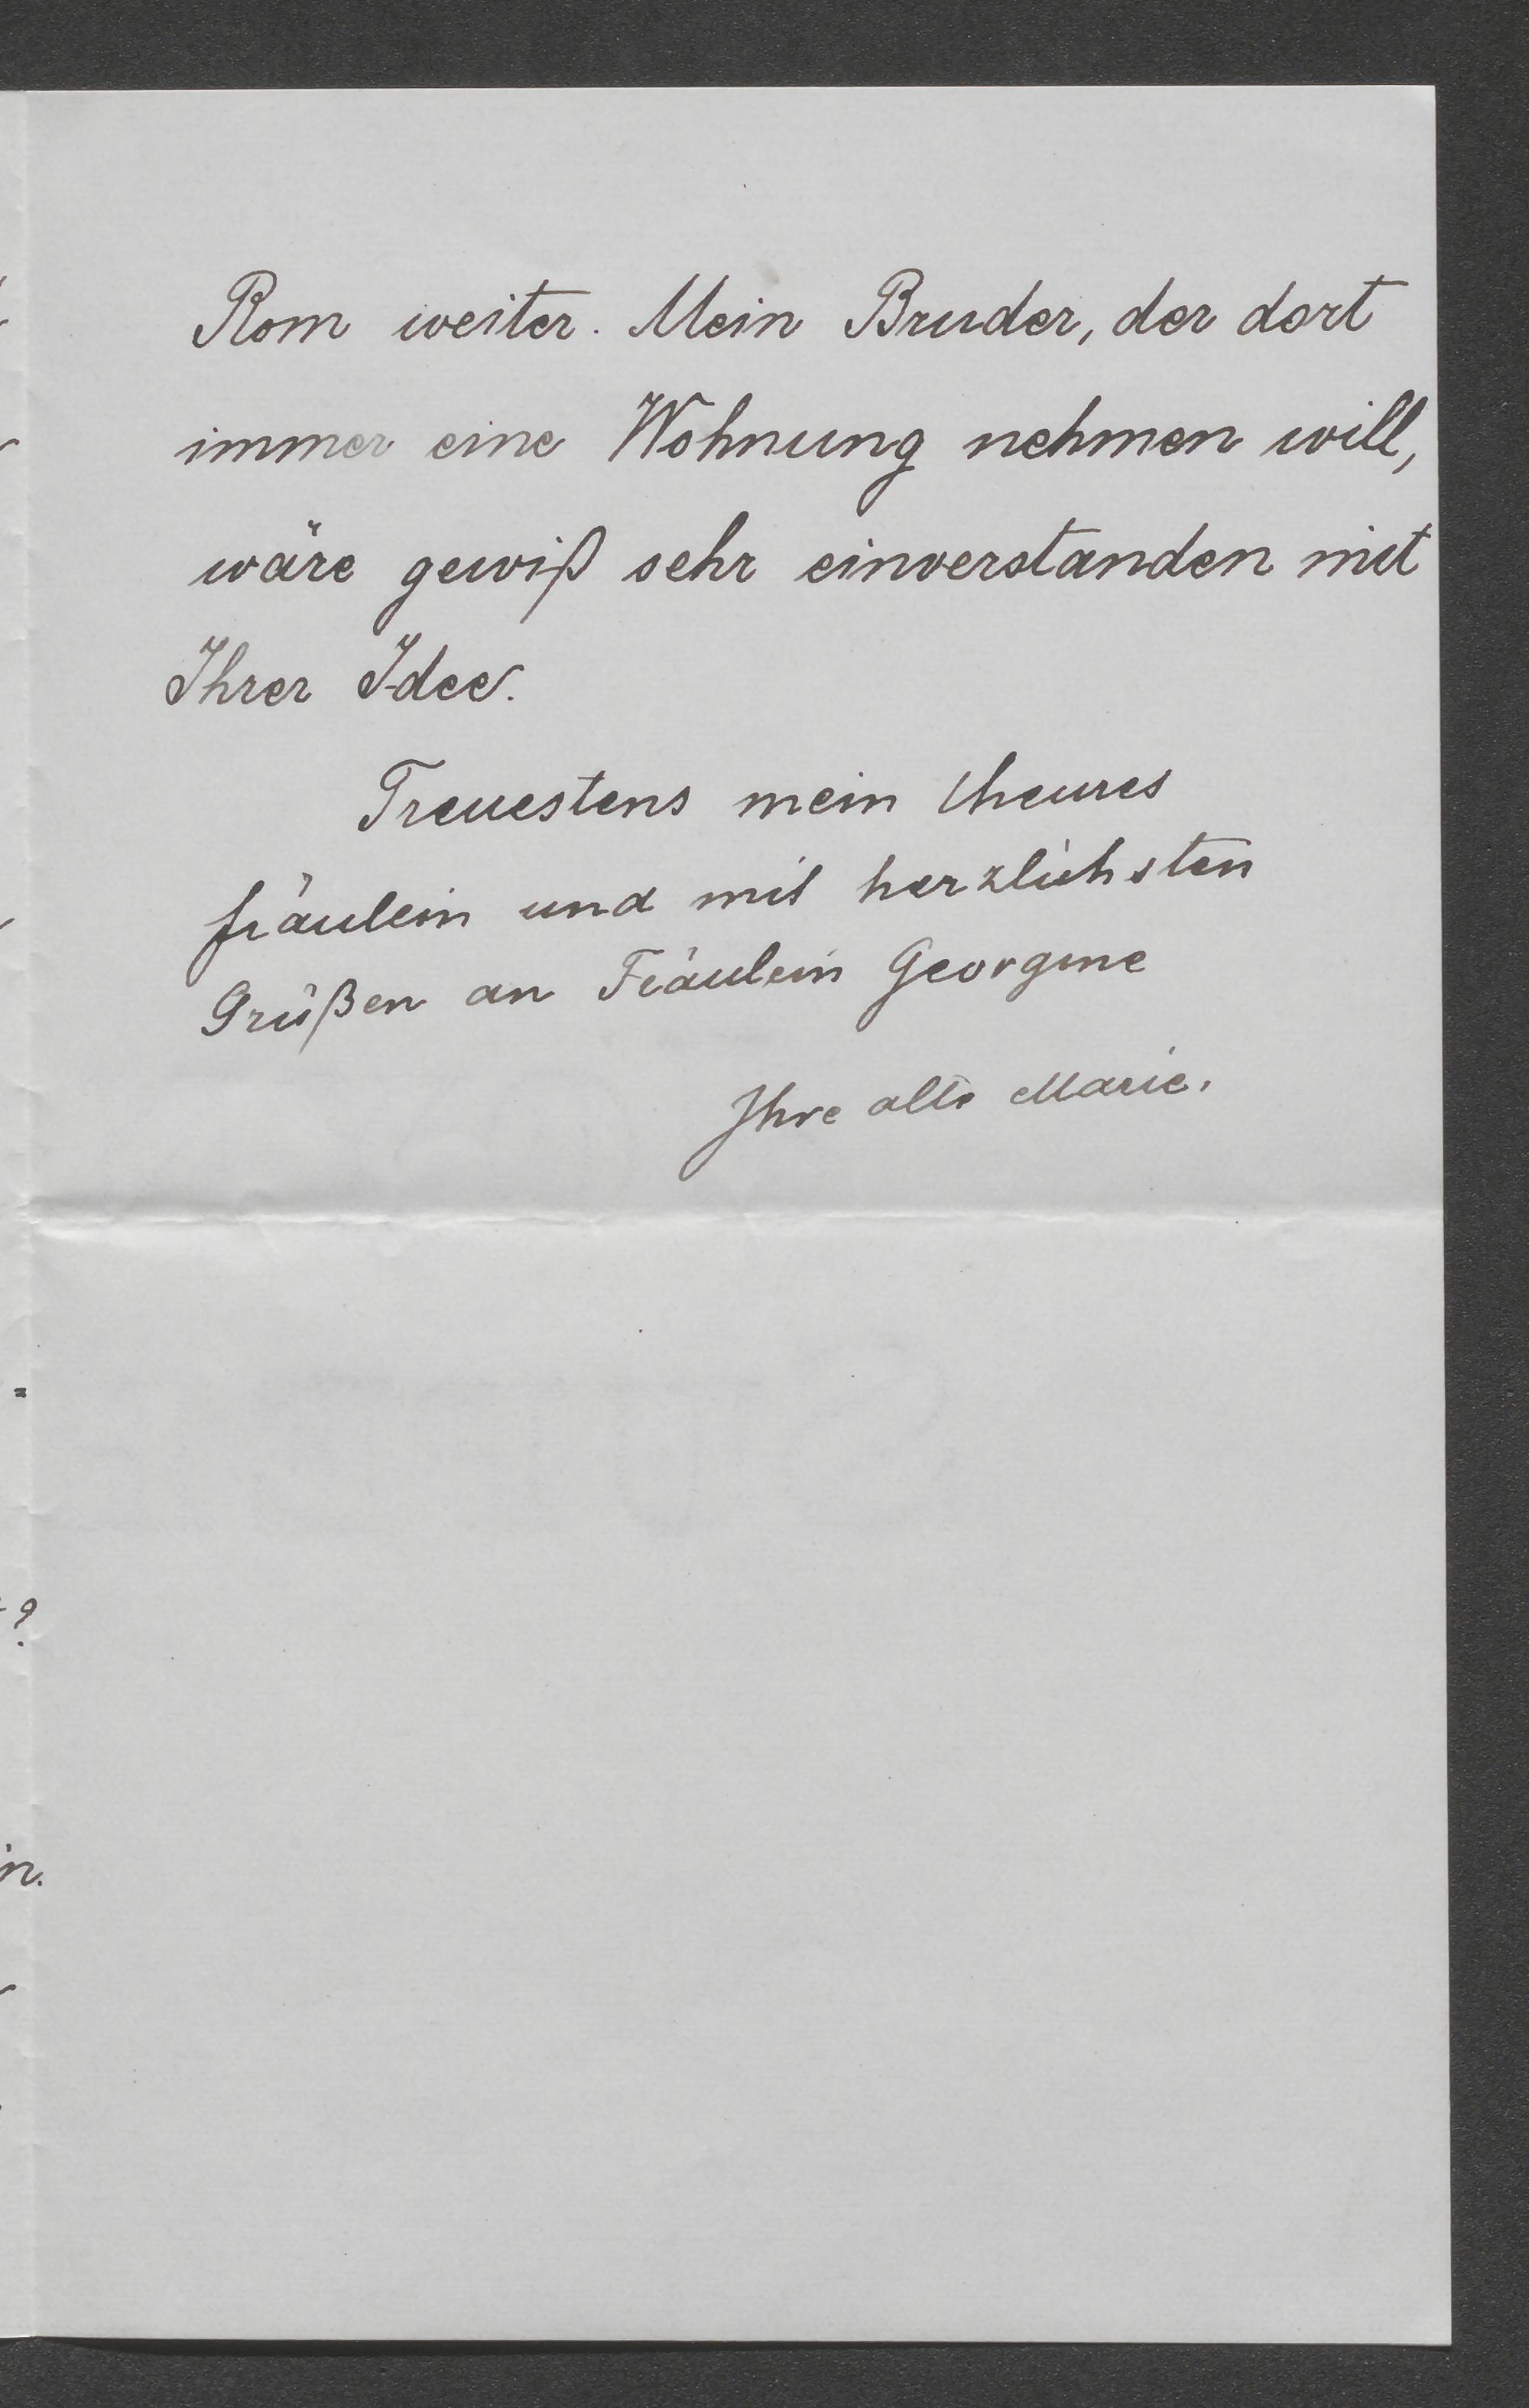 Rom weiter. Mein Bruder, der dort
immer eine Wohnung nehmen will,
wäre gewiß sehr einverstanden mit
Ihrer Idee.
Treuestens mein theures
fräulein und mit herzlichsten
Grüßen an Fräulein Georgine
Ihre alte Marie.